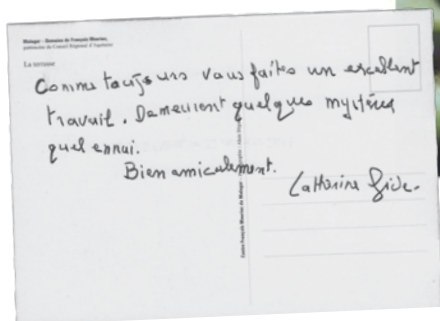 Malagar - Domaine de François Mauriac,
patrimoine du Conseil Régional d'Aquitaine
La terrasse
Comme toujours vous faites un excellent
travail. Demeurent quelques mystères
quel ennui.
Bien amicalement.
Catherine Gide.
Centre François Mauriac de Malagar